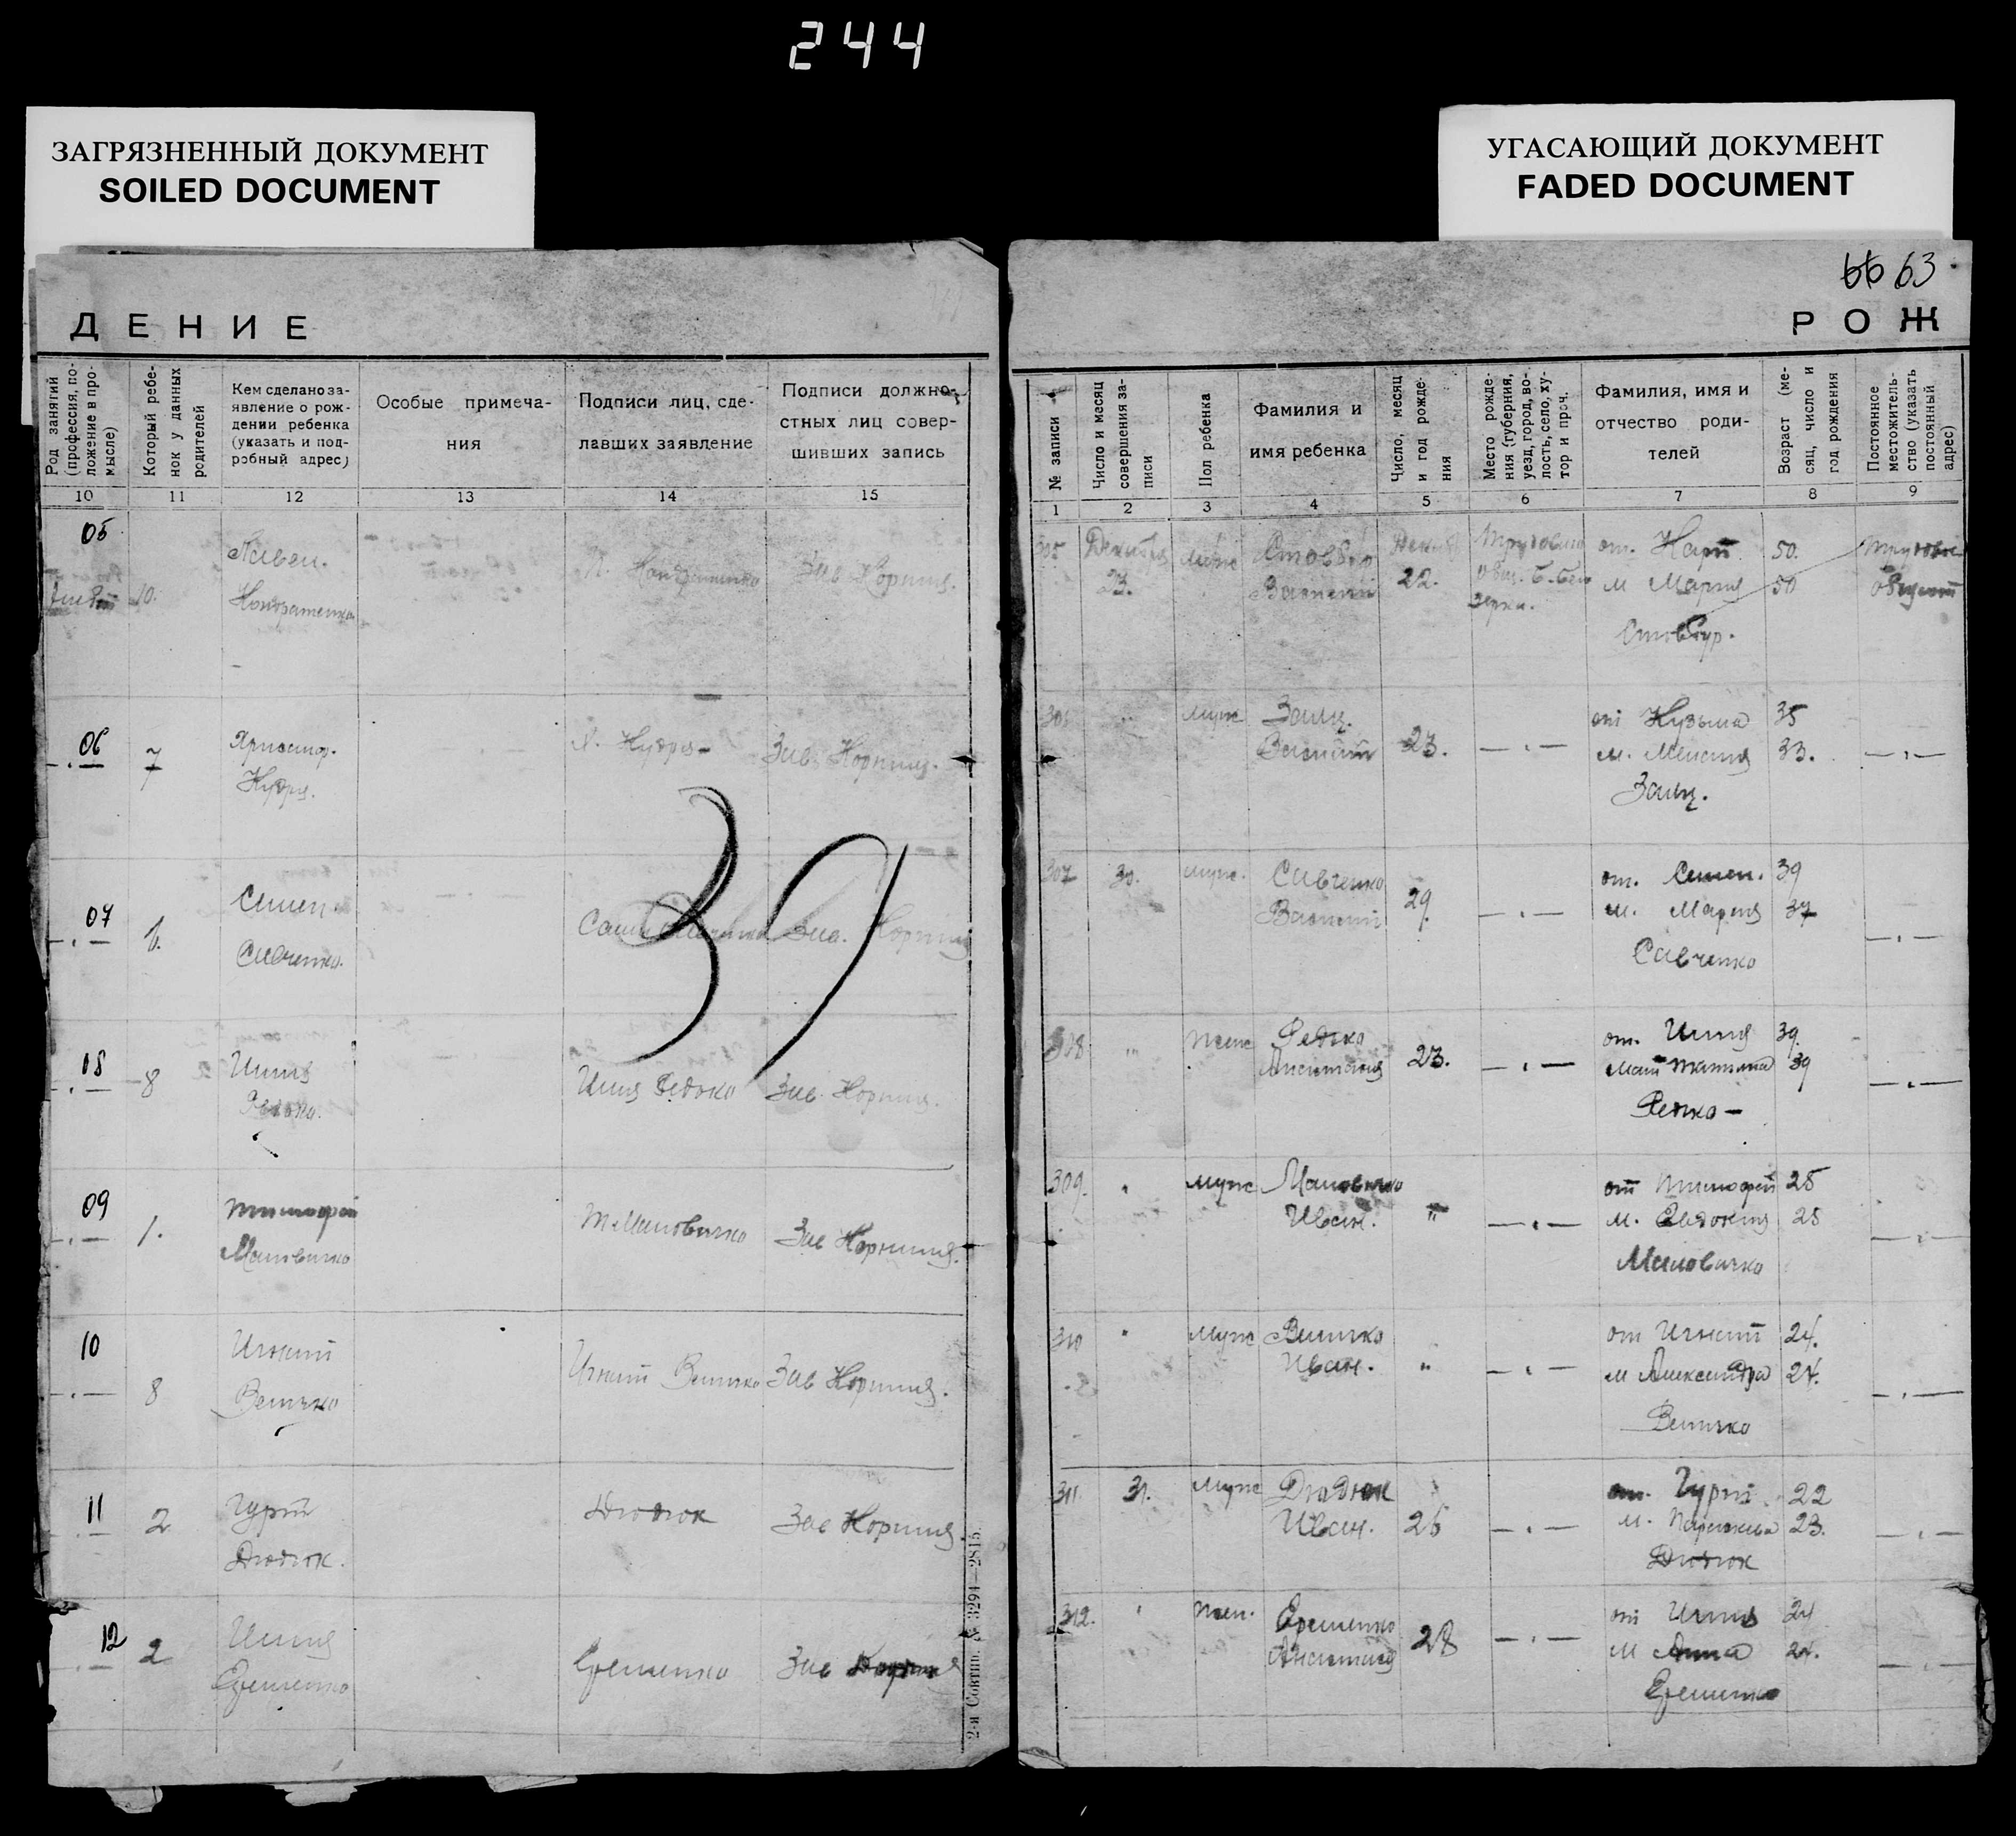 244
ЗАГРЯЗНЕННЫЙ ДОКУМЕНТ
SOILED DOCUMENT
УГАСАЮЩИЙ ДОКУМЕНТ
FADED DOCUMENT
ДЕНИЕ
Род занятий (профессия, положение в промысле)
Который ребенок у данных родителей
Кем сделано за-
явление о рож-
дении ребенка
(указать и под-
робный адрес)
Особые примеча-
ния
Подписи лиц, сде-
лавших заявление
Подписи должно-
стных лиц совер-
шивших запись
10 11 12 13 14 15
05
10.
Павел.
Кондратенко
П. Кондратенко
Зав. Корния.
06
7
Кудря.
Кудря
Зав. Корния.
07
6.
Семен
Савченко.
Зав. Корния
08
8
Илия
Редько.
Илия Редько
Зав. Корния.
09
1.
Тимофей
Маловичко
Т. Маловичко
Зав Корния.
10
8
Игнат
Величко
Игнат Величко
Зав Корния.
11
2
Гурий
Дюдюк.
Дюдюк
Зав Корния
12
2
Илия
Ерешенко
Ерешенко
Зав Корния
39
2-я Совтип. № 3291—2815.
66 63
РОЖ
№ записи
Число и месяц совершения записи
Пол ребенка
Фамилия и
имя ребенка
Число, месяц и год рождения
Место рождения (губерния, уезд, город, волость, село, хутор и проч.
Фамилия, имя и
отчество роди-
телей
Возраст (месяц, число и год рождения
Постоянное местожительство (указать постоянный адрес)
1 2 3 4 5 6 7 8 9
305
Декабря
23.
муж
Стовбур
Василий
22.
от. Карп 50.
м Мария 50
Стовбур.
306
муж
Заиц.
Василий
23.
от Кузьма 35
м. 33.
Заиц.
307
30.
муж.
Савченко
Василий
29.
от. Семен. 39
м. Мария 37
Савченко
308
жен
Редько
Анастасия
23.
от. Илия 39.
мат Татьяна 39
Редько —
309.
муж
Маловичко
Иван.
"
от Тимофей 25
м. Евдокия 25
Маловичко
310
муж
Величко
Иван.
"
от Игнат 24.
м Александра 24.
Величко
311
31.
муж
Дюдюк
Иван.
26
от. Гурий 22
м. Парасковья 23.
Дюдюк
312.
жен.
Ерешенко
Анастасия
28
от Илия 24
м Анна 24.
Ерешенко